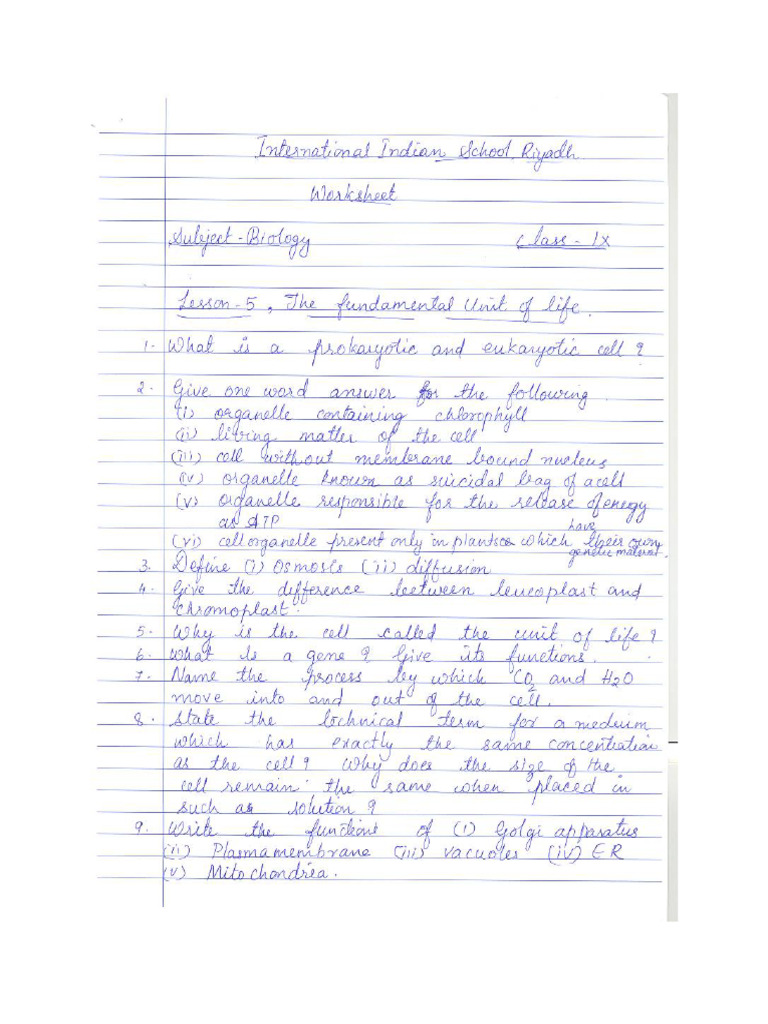 International Indian School, Riyadh
Worksheet
Subject - Biology Class - IX
Lesson - 5, The fundamental Unit of life.
1. What is a prokaryotic and eukaryotic cell?
2. Give one word answer for the following
(i) organelle containing chlorophyll
(ii) living matter of the cell
(iii) cell without membrane bound nucleus
(iv) organelle known as suicidal bag of a cell
(v) organelle responsible for the release of energy
as ATP
(vi) cell organelle present only in plants which have their own
genetic material
3. Define (i) Osmosis (ii) diffusion
4. Give the difference between leucoplast and
chromoplast.
5. Why is the cell called the unit of life?
6. What is a gene? Give its functions.
7. Name the process by which CO2 and H2O
move into and out of the cell.
8. State the technical term for a medium
which has exactly the same concentration
as the cell? Why does the size of the
cell remain the same when placed in
such as solution?
9. Write the functions of (i) Golgi apparatus
(ii) Plasma membrane (iii) vacuoles (iv) ER
(v) Mitochondrea.